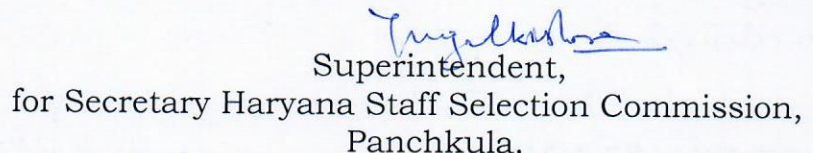 Superintendent,
for Secretary Haryana Staff Selection Commission,
Panchkula.